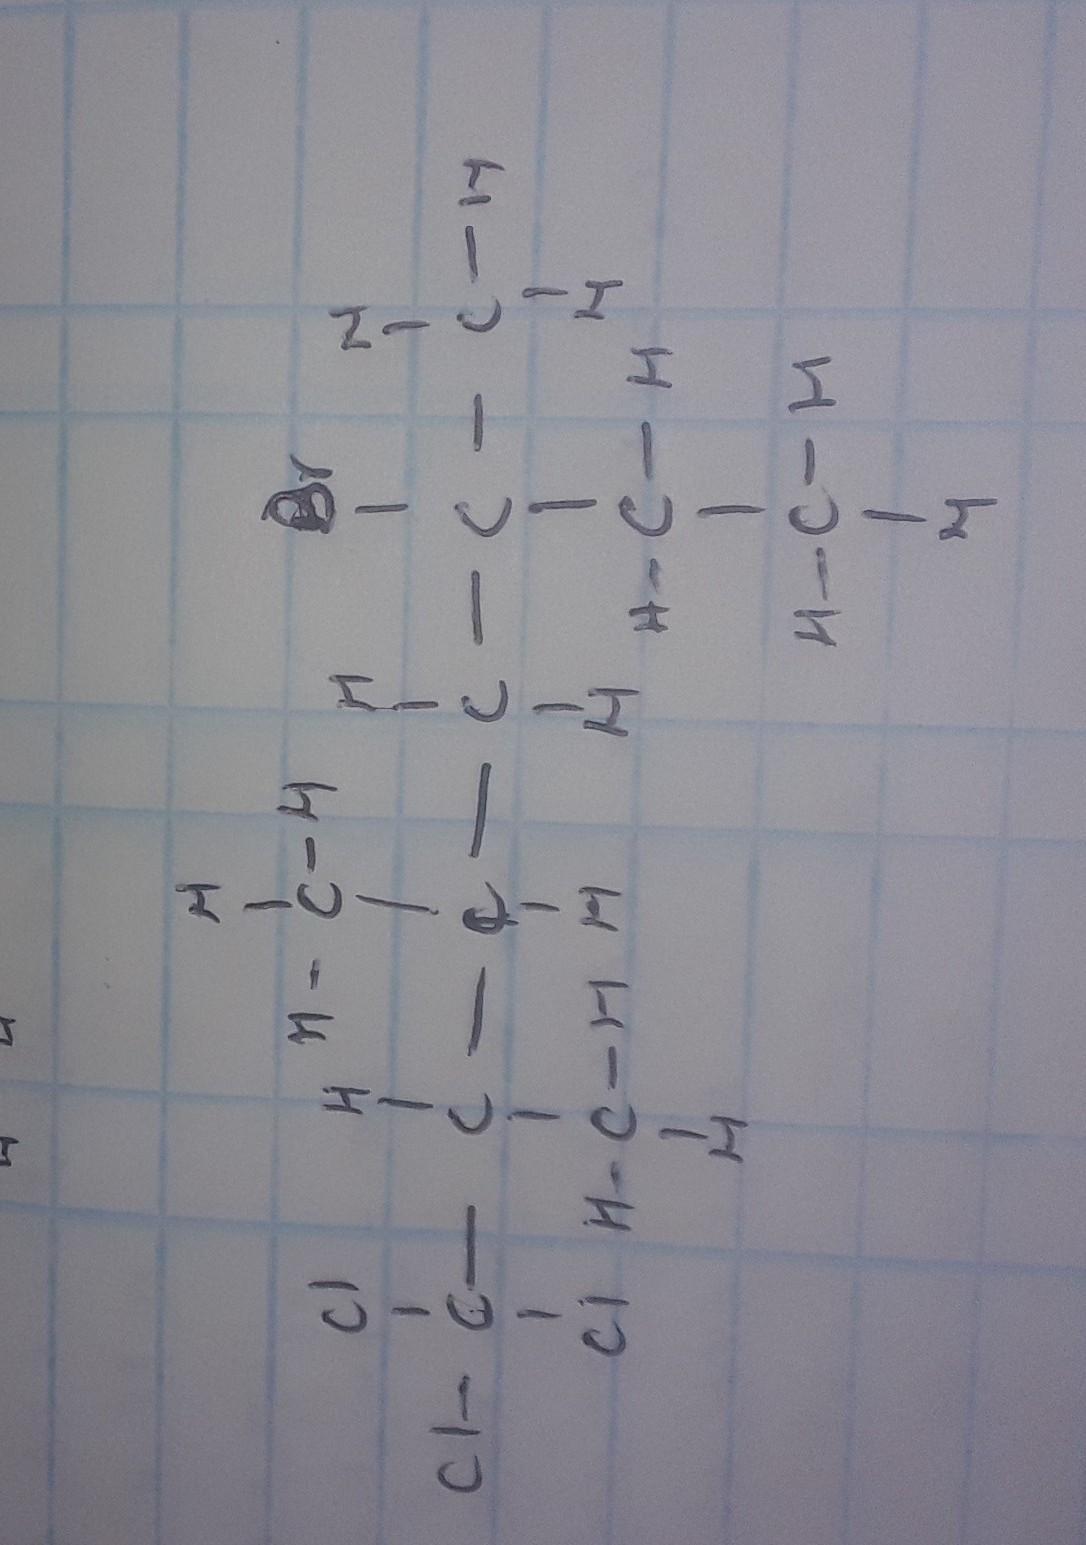 H
H - C - H Br
Cl H H H
Cl - C - C - C - C - C - C - H
Cl H - C - H H H H
H - C - H
H
H - C - H
H